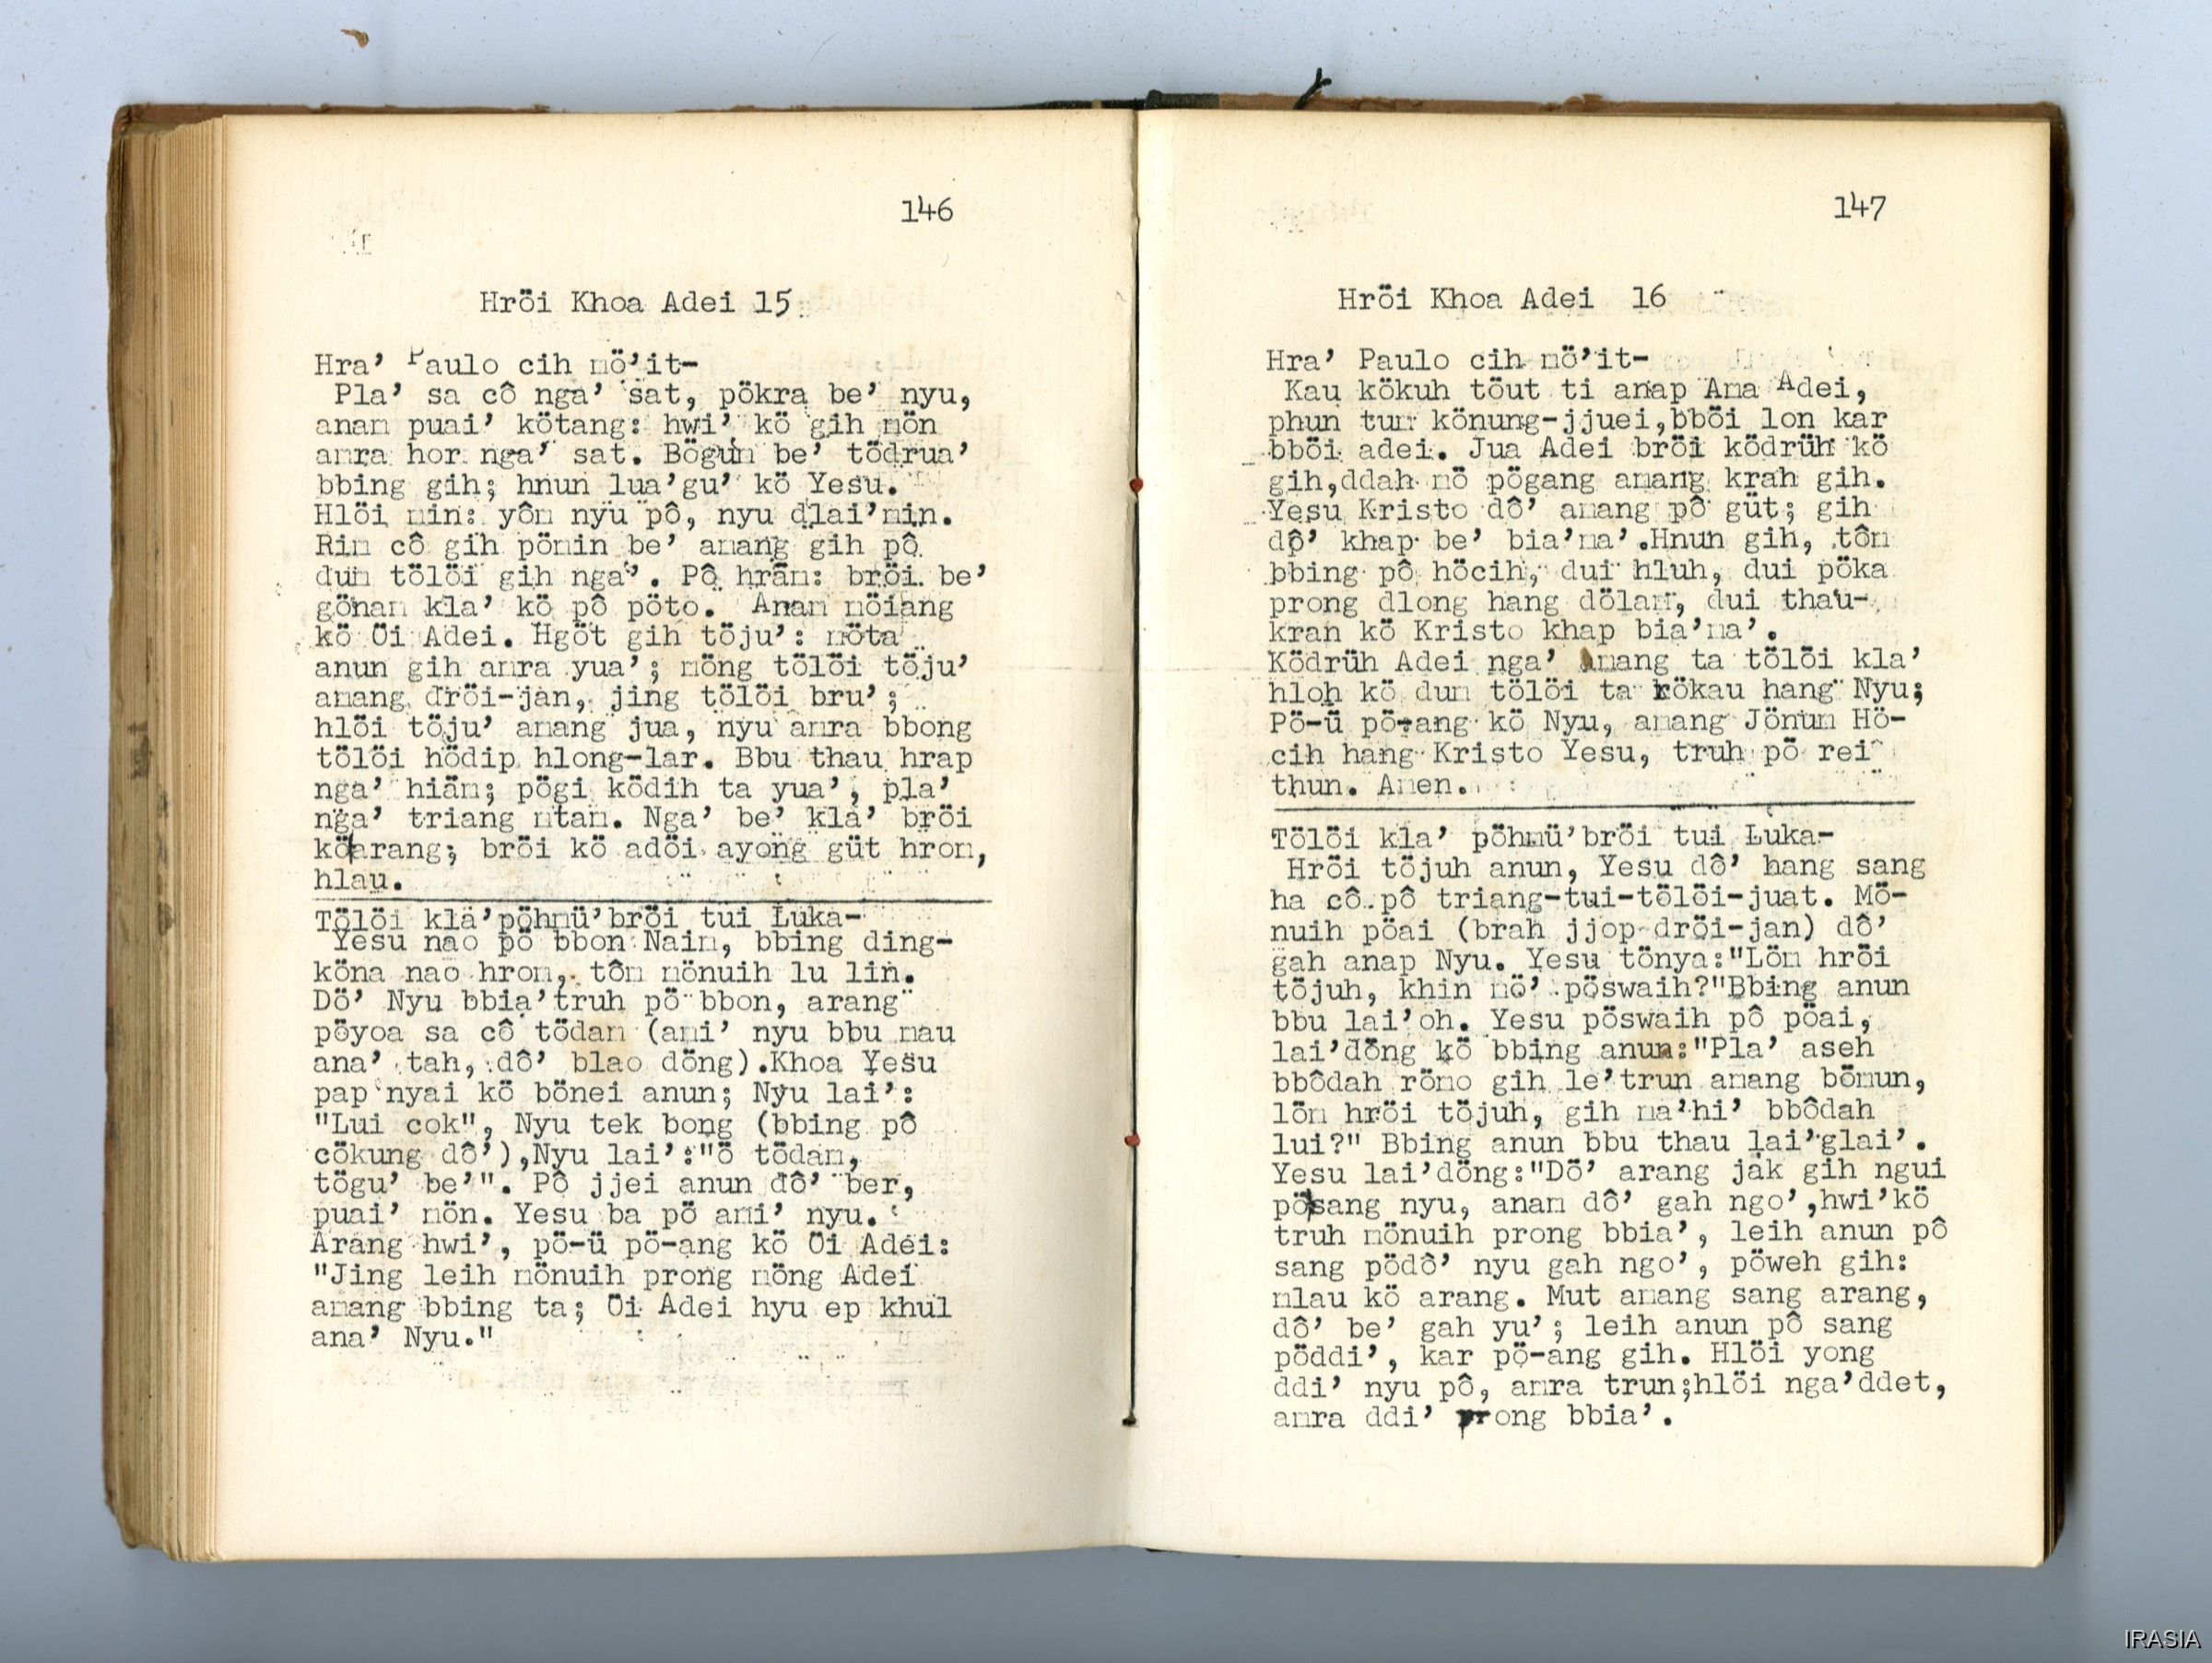 146
Hröi Khoa Adei 15
Hra’ Paulo cih mö’it-
Pla’ sa cô nga’ sat, pökra be’ nyu,
anam puai’ kötang: hwi’ kö gih mön
amra hor nga’ sat. Bögum be’ tödrua’
bbing gih; hnun lua’gu’ kö Yesu.
Hlöi min: yôm nyu pô, nyu dlai’min.
Rim cô gih pömin be’ amang gih pô
dum tölöi gih nga’. Pô hräm: bröi be’
gönam kla’ kö pô pöto. Anam möiang
kö Öi Adei. Hgöt gih töju’: möta
anun gih amra yua’; möng tölöi töju’
amang dröi-jan, jing tölöi bru’;
hlöi töju’ amang jua, nyu amra bbong
tölöi hödip hlong-lar. Bbu thau hrap
nga’ hiäm; pögi ködih ta yua’, pla’
nga’ triang mtam. Nga’ be’ kla’ bröi
köarang; bröi kö adöi ayong güt hrom,
hlau.
Tölöi kla’pöhmü’bröi tui Luka-
Yesu nao pö bbon Naim, bbing ding-
köna nao hrom, tôm mönuih lu lin.
Dö’ Nyu bbia’truh pö bbon, arang
pöyoa sa cô tödam (ami’ nyu bbu mau
ana’ tah, dô’ blao döng).Khoa Yesu
pap nyai kö bönei anun; Nyu lai’:
"Lui cok", Nyu tek bong (bbing pô
cökung dô’),Nyu lai’:"ö tödam,
tögu’ be’". Pô jjei anun dô’ ber,
puai’ mön. Yesu ba pö ami’ nyu.
Arang hwi’, pö-ü pö-ang kö Öi Adei:
"Jing leih mönuih prong möng Adei
amang bbing ta; Öi Adei hyu ep khul
ana’ Nyu."
147
Hröi Khoa Adei 16
Hra’ Paulo cih mö’it-
Kau kökuh töut ti anap Ama Adei,
phun tum könung-jjuei,bböi lon kar
bböi adei. Jua Adei bröi ködrüh kö
gih,ddah mö pögang amang krah gih.
Yesu Kristo dô’ amang pô güt; gih
dô’ khap be’ bia’ma’.Hnun gih, tôm
bbing pô höcih, dui hluh, dui pöka
prong dlong hang dölam, dui thau-
kran kö Kristo khap bia’ma’.
Ködrüh Adei nga’ amang ta tölöi kla’
hloh kö dum tölöi ta rökau hang Nyu;
Pö-ü pö-ang kö Nyu, amang Jönum Hö-
cih hang Kristo Yesu, truh pö rei
thun. Amen.
Tölöi kla’ pöhmü’bröi tui Luka-
Hröi töjuh anun, Yesu dô’ hang sang
ha cô pô triang-tui-tölöi-juat. Mö-
nuih pöai (brah jjop dröi-jan) dô’
gah anap Nyu. Yesu tönya:"Löm hröi
töjuh, khin mö’ pöswaih?"Bbing anun
bbu lai’oh. Yesu pöswaih pô pöai,
lai’döng kö bbing anun:"Pla’ aseh
bbôdah römo gih le’trun amang bömun,
löm hröi töjuh, gih ma’hi’ bbôdah
lui?" Bbing anun bbu thau lai’glai’.
Yesu lai’döng:"Dö’ arang jak gih ngui
pösang nyu, anam dô’ gah ngo’,hwi’kö
truh mönuih prong bbia’, leih anun pô
sang pödô’ nyu gah ngo’, pöweh gih:
mlau kö arang. Mut amang sang arang,
dô’ be’ gah yu’; leih anun pô sang
pöddi’, kar pö-ang gih. Hlöi yong
ddi’ nyu pô, amra trun;hlöi nga’ddet,
amra ddi’ prong bbia’.
IRASIA